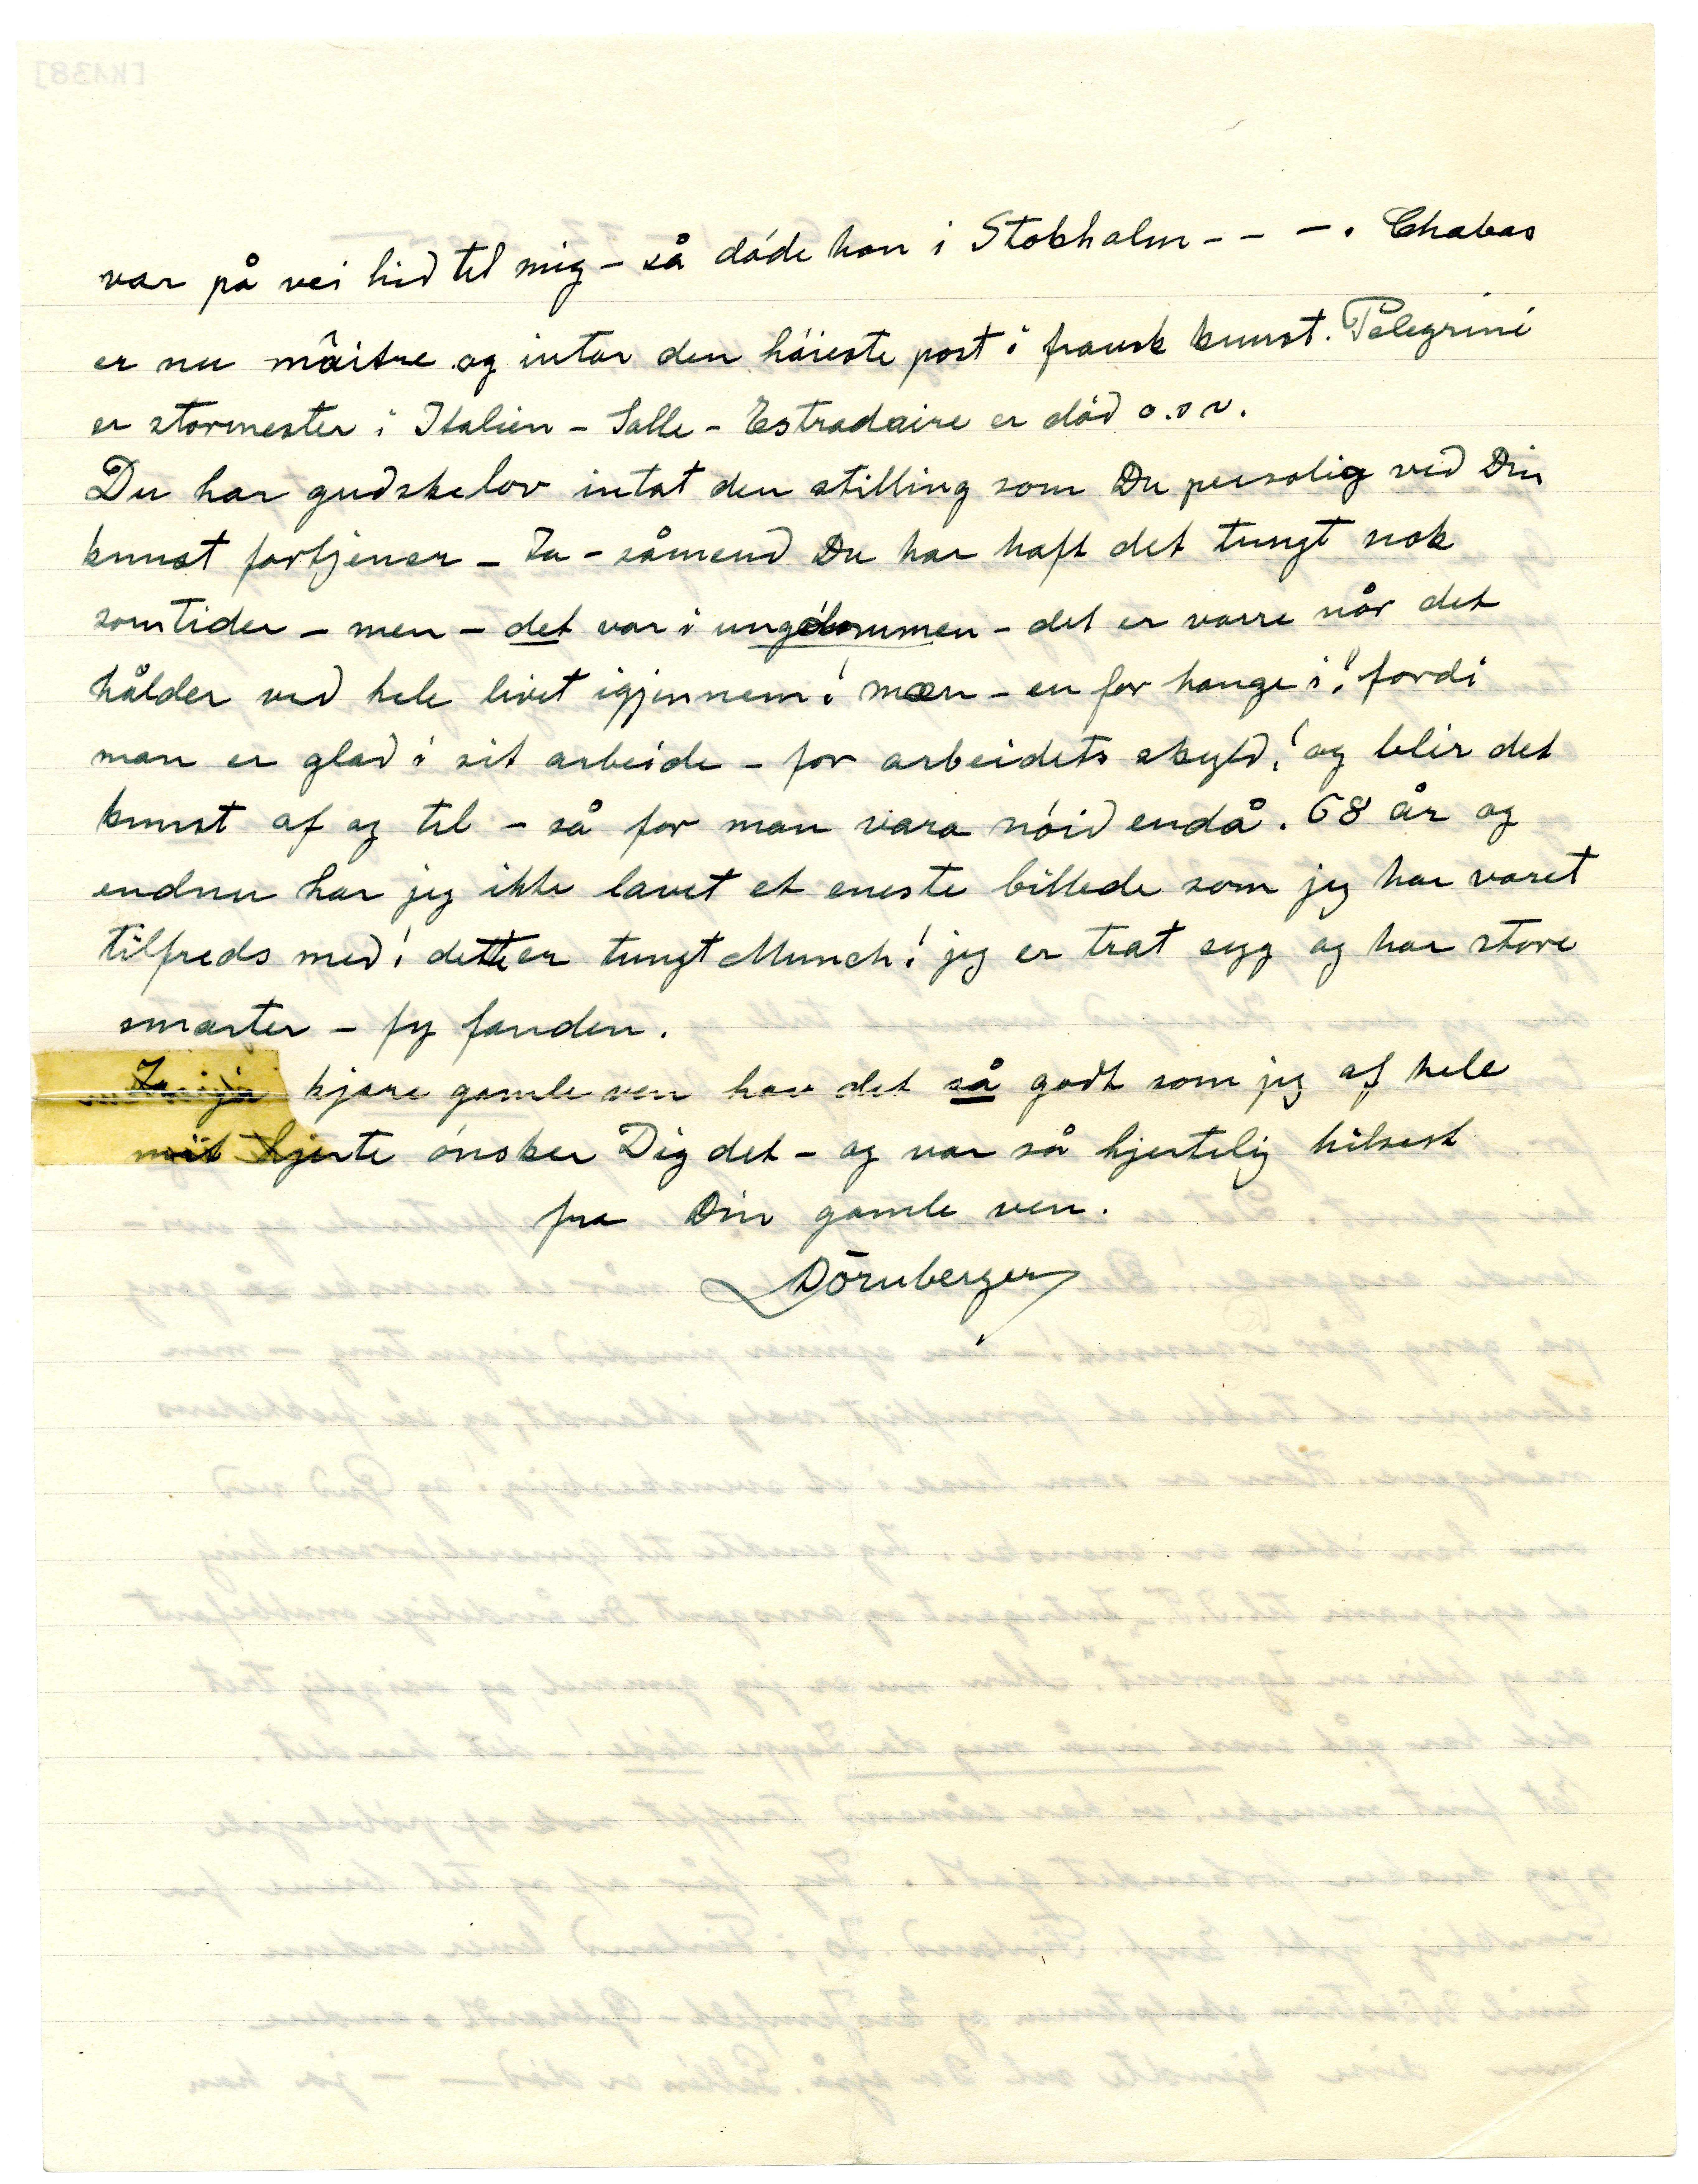 var på vei hid til mig – så döde han i Stokholm – – –. Chabas
er nu mâitre og intar den höieste post i fransk kunst. Pelegrini
er stormester i Italien – Salle – Estradaire er död o.s v.
Du har gudskelov intat den stilling som Du persolig ved Din
kunst fortjener – Ja – såmend Du har haft det tungt nok
somtider – men – det var i ungdommen – det er varre når det
hålder ved hele livet igjennem! mæn – en for hange i! fordi
man er glad i sit arbeide – for arbeidets skyld! og blir det
kunst af og til – så for man vara nöid endå. 68 år og
endnu har jeg ikke lavet et eneste billede som jeg har varet
tilfreds med! dette er tungt Munch! jeg er trat syg og har store
smarter – fy fanden.
kjare gamle ven hav det så godt som jeg af hele
mit hjerte önsker Dig det – og var så hjertelig hilsest
fra Din gamle ven.
Dörnberger